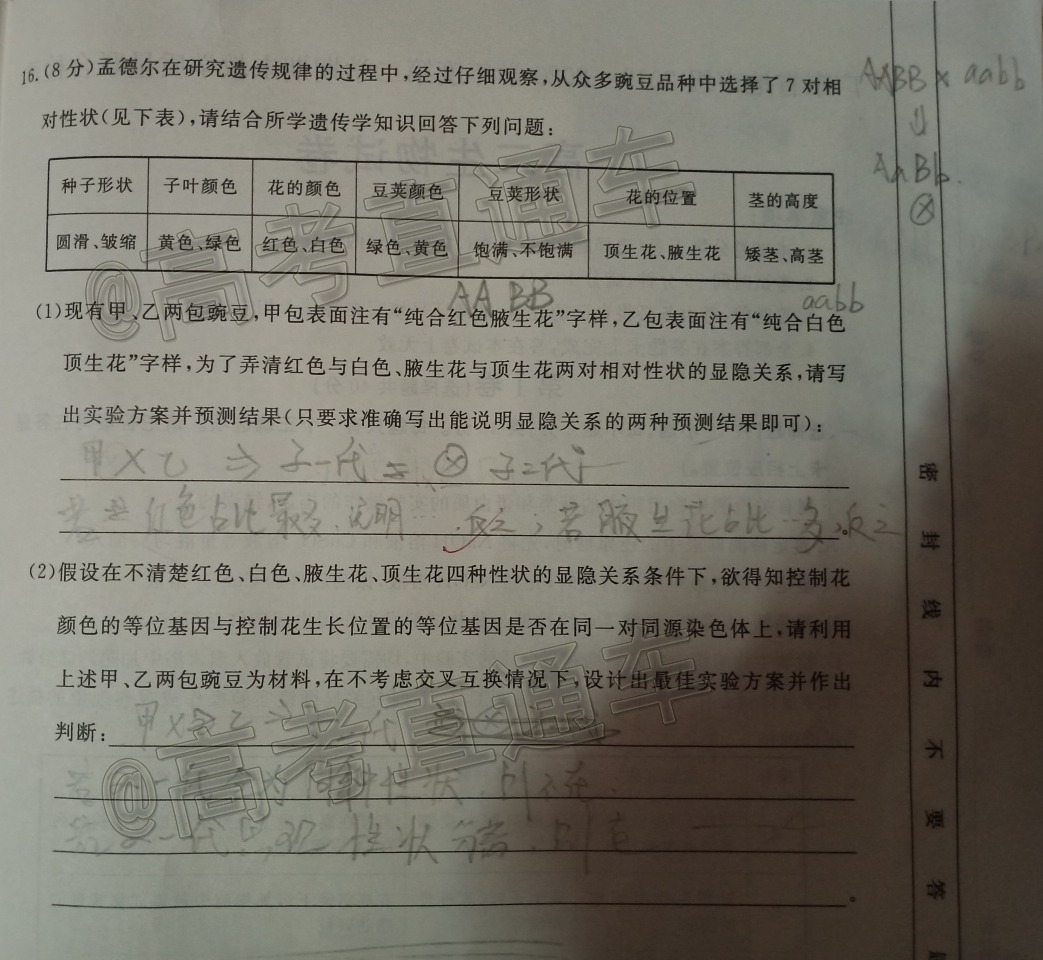 16.(8分)孟德尔在研究遗传规律的过程中,经过仔细观察,从众多豌豆品种中选择了7对相
对性状(见下表),请结合所学遗传学知识回答下列问题:
AABB × aabb
↓
AaBb.
⊗
种子形状 子叶颜色 花的颜色 豆荚颜色 豆荚形状 花的位置 茎的高度
圆滑、皱缩 黄色、绿色 红色、白色 绿色、黄色 饱满、不饱满 顶生花、腋生花 矮茎、高茎
AABB aabb
(1)现有甲、乙两包豌豆,甲包表面注有“纯合红色腋生花”字样,乙包表面注有“纯合白色
顶生花”字样,为了弄清红色与白色、腋生花与顶生花两对相对性状的显隐关系,请写
出实验方案并预测结果(只要求准确写出能说明显隐关系的两种预测结果即可):
甲×乙 ⇒ 子一代 ⊗ 子二代
红色占比最多,说明 反之;若腋生花占比多,反之
(2)假设在不清楚红色、白色、腋生花、顶生花四种性状的显隐关系条件下,欲得知控制花
颜色的等位基因与控制花生长位置的等位基因是否在同一对同源染色体上,请利用
上述甲、乙两包豌豆为材料,在不考虑交叉互换情况下,设计出最佳实验方案并作出
判断:
甲× 乙
种性状,则不在.
一代 现 性状分离,则在
密封线内不要答
@高考直通车
@高考直通车